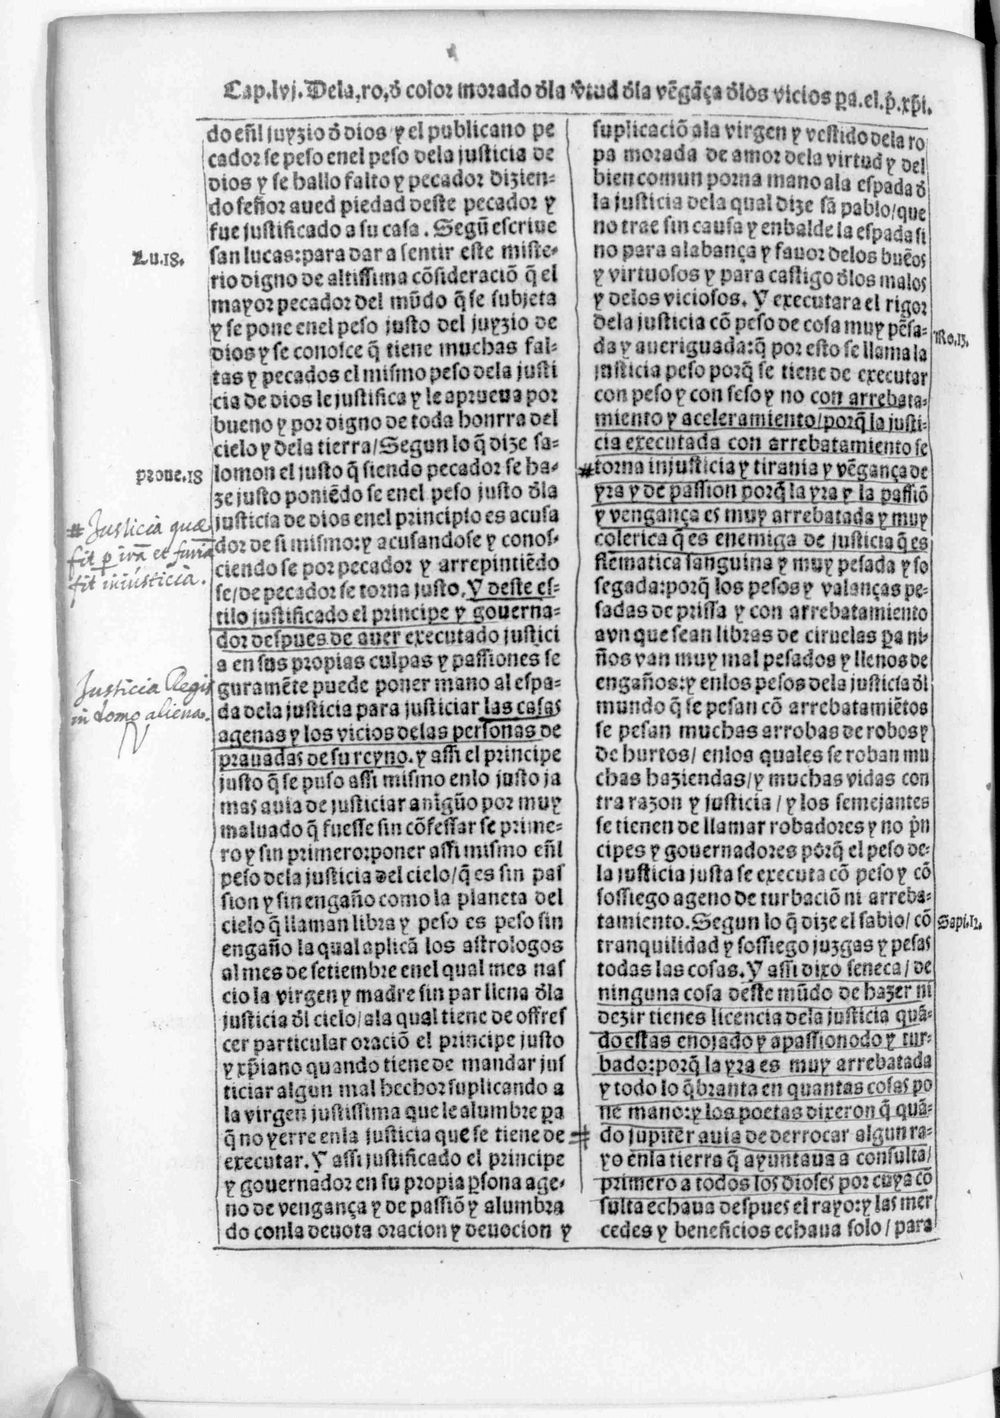 Cap.lvj. Dela.ro.đ color morado đla v̄tud đla vēgāça đlos vicios p̱a.el.p̄.xp̄i.
do eñl juyzio đ dios y el publicano pe
cador se peso enel peso dela justicia de
dios y se hallo falto y pecador dizien-
do señor aued piedad deste pecador y
fue justificado a su casa. Segū escriue
san lucas:para dar a sentir este miste-
rio digno de altissima cōsideraciō q̄ el
mayor pecador del mūdo q̄ se subjeta
y se pone enel peso justo del juyzio de
dios y se conosce q̄ tiene muchas fal-
tas y pecados el mismo peso dela justi
cia de dios le justifica y le aprueua por
bueno y por digno de toda honrra del
cielo y dela tierra/Segun lo q̄ dize sa-
lomon el justo q̄ siendo pecador se ha-
ze justo poniēdo se enel peso justo đla
justicia de dios enel principio es acusa
dor de si mismo:y acusandose y conos-
ciendo se por pecador y arrepintiēdo
se/de pecador se torna justo. Y deste es-
tilo justificado el principe y gouerna-
dor despues de auer executado justici
a en sus propias culpas y passiones se
guramēte puede poner mano al espa-
da dela justicia para justiciar las casas
agenas y los vicios delas personas de
prauadas de su reyno. y assi el principe
justo q̄ se puso assi mismo enlo justo ja
mas auia de justiciar a nīgūo por muy
maluado q̄ fuesse sin cōfessar se prime-
ro y sin primero:poner assi mismo eñl
peso dela justicia del cielo/q̄ es sin pas
sion y sin engaño como la planeta del
cielo q̄ llaman libra y peso es peso sin
engaño la qual aplicā los astrologos
al mes de setiembre enel qual mes nas
cio la virgen y madre sin par llena đla
justicia đl cielo/ala qual tiene de offres
cer particular oraciō el principe justo
y xp̄iano quando tiene de mandar jus
ticiar algun mal hechor suplicando a
la virgen justissima que le alumbre p̱a
q̄ no yerre enla justicia que se tiene de
executar. Y assi justificado el principe
y gouernador en su propia p̱sona age-
no de vengança y de passiō y alumbra
do conla deuota oracion y deuocion y
Lu.18.
proue.18
# Justicia quæ
fit p̱ irā et furiā
fit iniusticia.
Justicia Regis
in domo aliena.
suplicaciō ala virgen y vestido dela ro
pa morada de amor dela virtud y del
bien comun porna mano ala espada đ
la justicia dela qual dize sā pablo/que
no trae sin causa y enbalde la espada si
no para alabança y fauor delos buēos
y virtuosos y para castigo đlos malos
y delos viciosos. Y executara el rigor
dela justicia cō peso de cosa muy pēsa-
da y aueriguada:q̄ por esto se llama la
justicia peso porq̄ se tiene de executar
con peso y con seso y no con arrebata-
miento y aceleramiento/porq̄ la justi-
cia executada con arrebatamiento se
#torna injusticia y tirania y vēgança de
yra y de passion porq̄ la yra y la passiō
y vengança es muy arrebatada y muy
colerica q̄ es enemiga de justicia q̄ es
flēmatica sanguina y muy pesada y so
segada:porq̄ los pesos y valanças pe-
sadas de prissa y con arrebatamiento
avn que sean libras de ciruelas p̱a ni-
ños van muy mal pesados y llenos de
engaños:y enlos pesos dela justicia đl
mundo q̄ se pesan cō arrebatamiētos
se pesan muchas arrobas de robos y
de hurtos/ enlos quales se roban mu
chas haziendas/y muchas vidas con
tra razon y justicia/y los semejantes
se tienen de llamar robadores y no p̄n
cipes y gouernadores pōrq̄ el peso de-
la justicia justa se executa cō peso y cō
sossiego ageno de turbaciō ni arreba-
tamiento. Segun lo q̄ dize el sabio/ cō
tranquilidad y sossiego juzgas y pesas
todas las cosas. Y assi dixo seneca/de
ninguna cosa deste mūdo de hazer ni
dezir tienes licencia dela justicia quā-
do estas enojado y apassionodo y tur-
bado:porq̄ la yra es muy arrebatada
y todo lo q̄branta en quantas cosas po
ne mano:y los poetas dixeron q̄ quā-
do jupiter auia de derrocar algun ra-
yo enla tierra q̄ ayuntaua a consulta/
primero a todos los dioses por cuya cō
sulta echaua despues el rayo:y las mer
cedes y beneficios echaua solo/para
Ro.13.
Sapi.12.